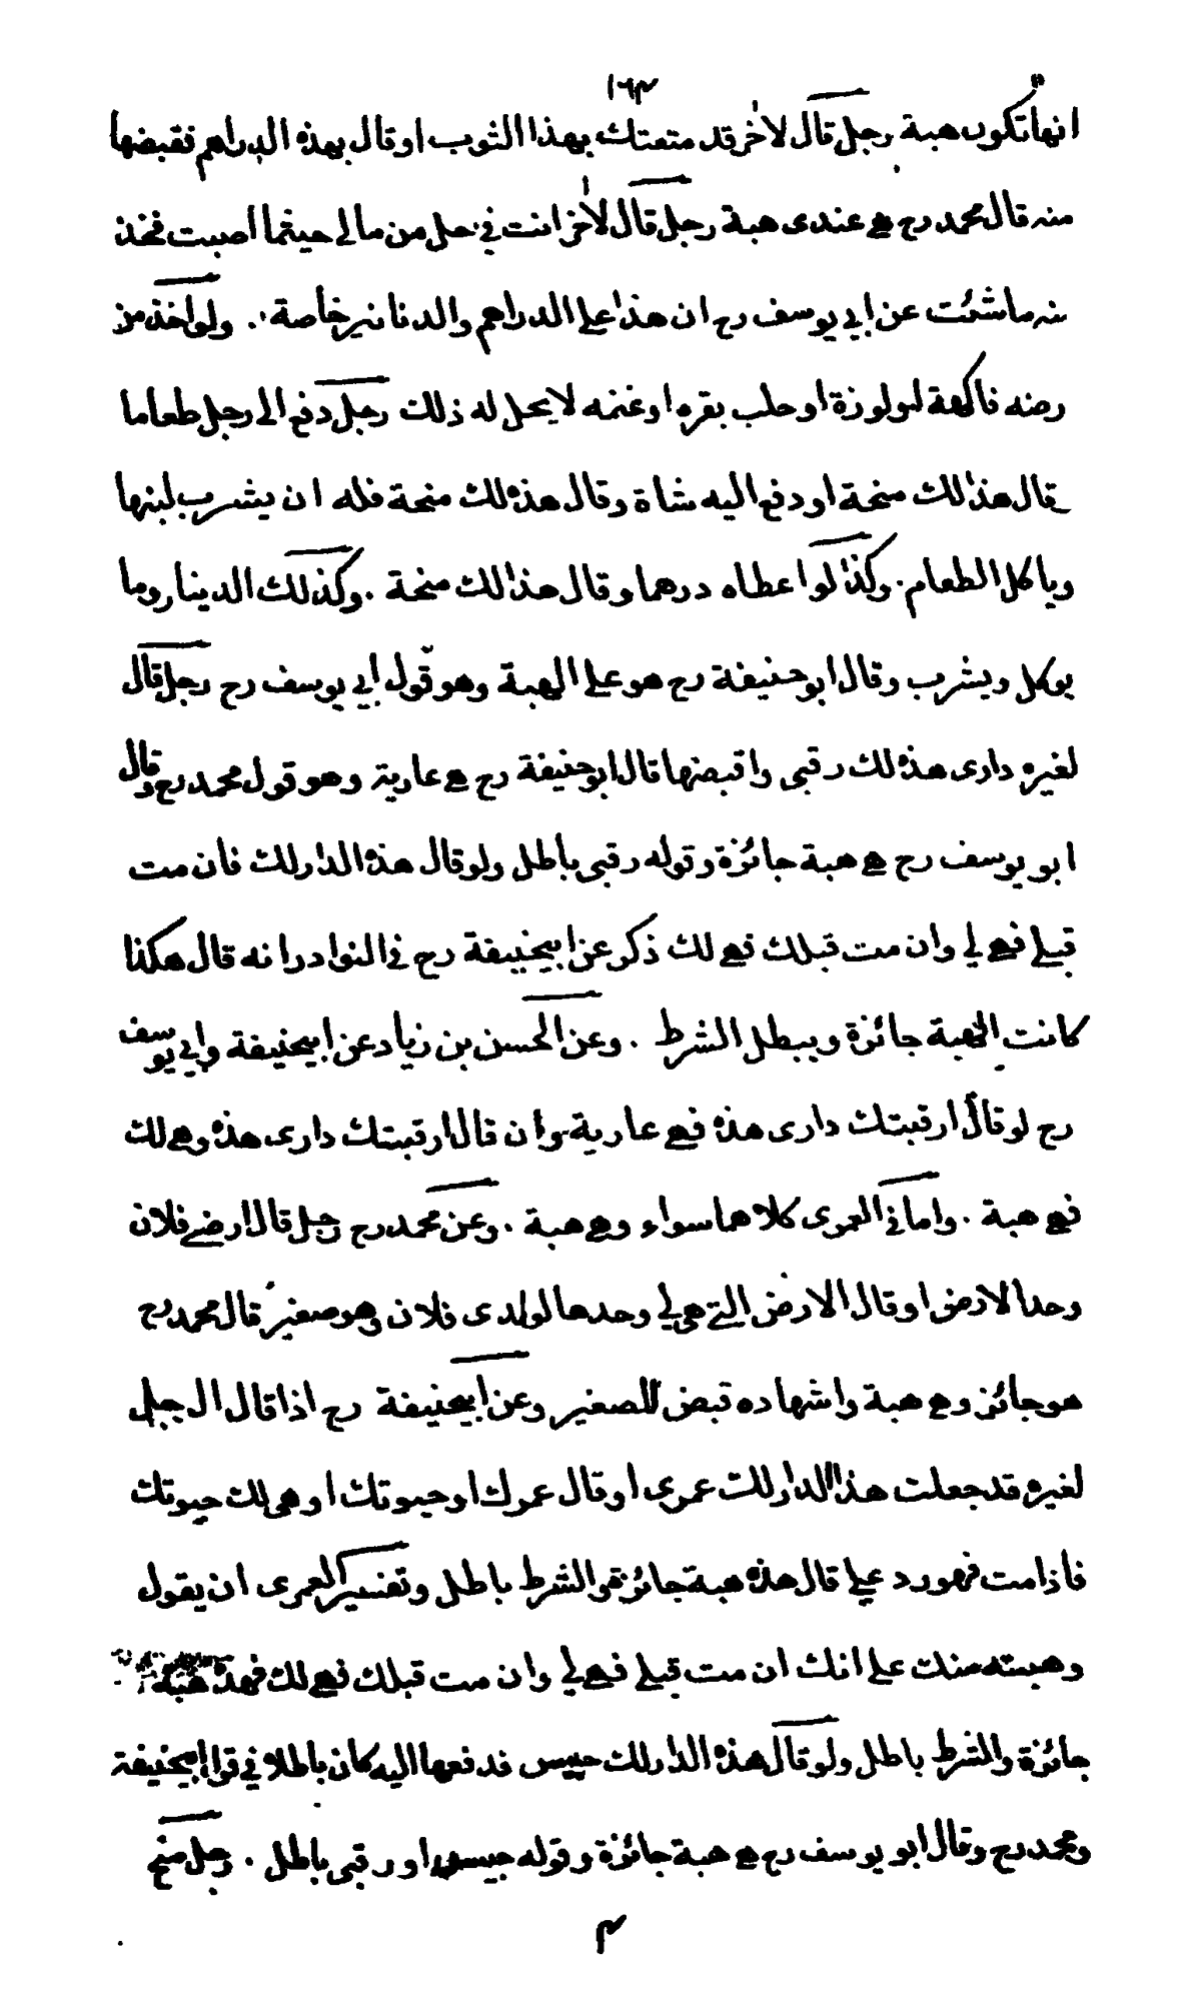 ١٦٣
انها تكون هبة رجل قال لاخر قد متعتك بهذا الثوب او قال بهذه الدراهم فقبضها
منه قال محمد رح هي عندى هبة رجل قال لاخر انت في حل من مالى حيثما اصبت فخذ
منه ماشئت عن ابي يوسف رح ان هذا على الدراهم والدنانير خاصة . ولو اخذ من
رضه فاكهة او لوزة او حلب بقره او غنمه لا يحل له ذلك رجل دفع الى رجل طعاما
قال هذا لك منحة او دفع اليه شاة وقال هذه لك منحة فله ان يشرب لبنها
وياكل الطعام . وكذا لو اعطاه درهما وقال هذا لك منحة . وكذلك الدينار وما
يوكل ويشرب وقال ابو حنيفة رح هو على الهبة وهو قول ابي يوسف رح رجل قال
لغيره دارى هذه لك رقبى واقبضها قال ابو حنيفة رح هي عارية وهو قول محمد رح وقال
ابو يوسف رح هي هبة جائزة وقوله رقبى باطل ولو قال هذه الدار لك فان مت
قبلي فهي لي وان مت قبلك فهي لك ذكر عن ابيحنيفة رح في النوادر انه قال هكذا
كانت الهبة جائزة ويبطل الشرط . وعن الحسن بن زياد عن ابيحنيفة وابي يوسف
رح لو قال ارقبتك دارى هذه فهي عارية وان قال ارقبتك دارى هذه وهي لك
فهي هبة . واما في العمرى كلاهما سواء وهي هبة . وعن محمد رح رجل قال ارضي فلان
وحدا الارض او قال الارض التي هي لي وحدها لولدى فلان وهو صغير قال محمد رح
هو جائز وهي هبة واشهاده قبض للصغير وعن ابيحنيفة رح اذا قال الرجل
لغيره قد جعلت هذا الدار لك عمرى او قال عمرك او حيوتك او هي لك حيوتك
فاذا مت فهو رد علي قال هذه هبة جائزة والشرط باطل وتفسير العمرى ان يقول
وهبته منك على انك ان مت قبلي فهي لي وان مت قبلك فهي لك فهذه هبة
جائزة والشرط باطل ولو قال هذه الدار لك حبيس فدفعها اليه كان باطلا في قول ابيحنيفة
ومحمد رح وقال ابو يوسف رح هي هبة جائزة وقوله حبيس او رقبى باطل . رجل منح
٣